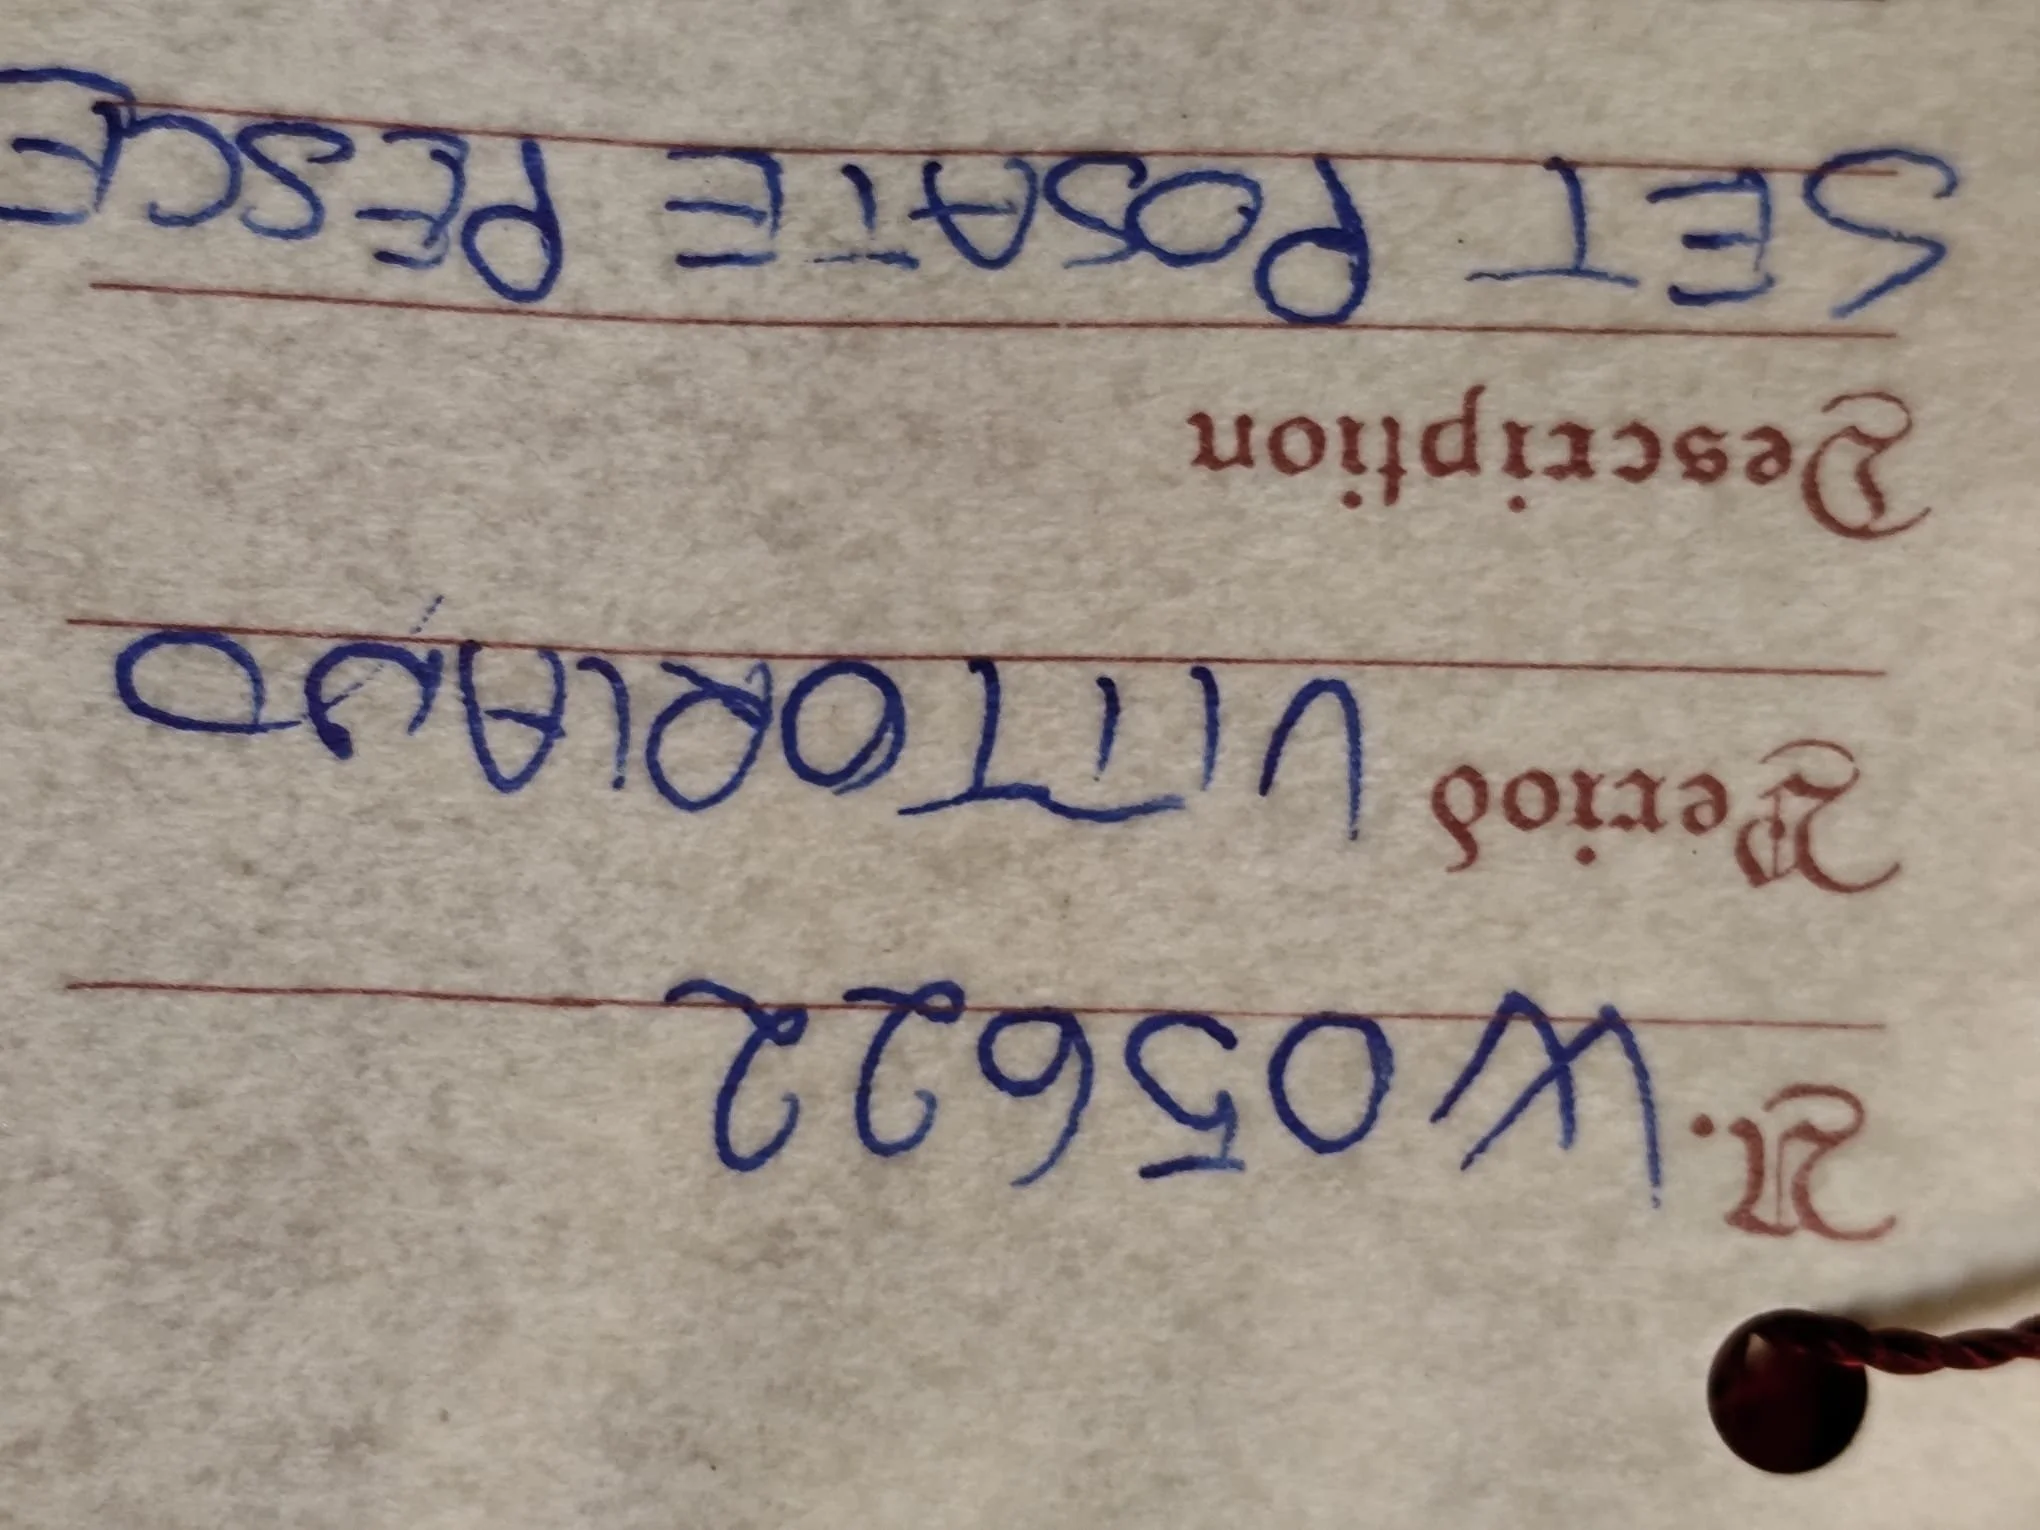 N. W05622
Period VITTORIANO
Description
SET POSATE PESCE